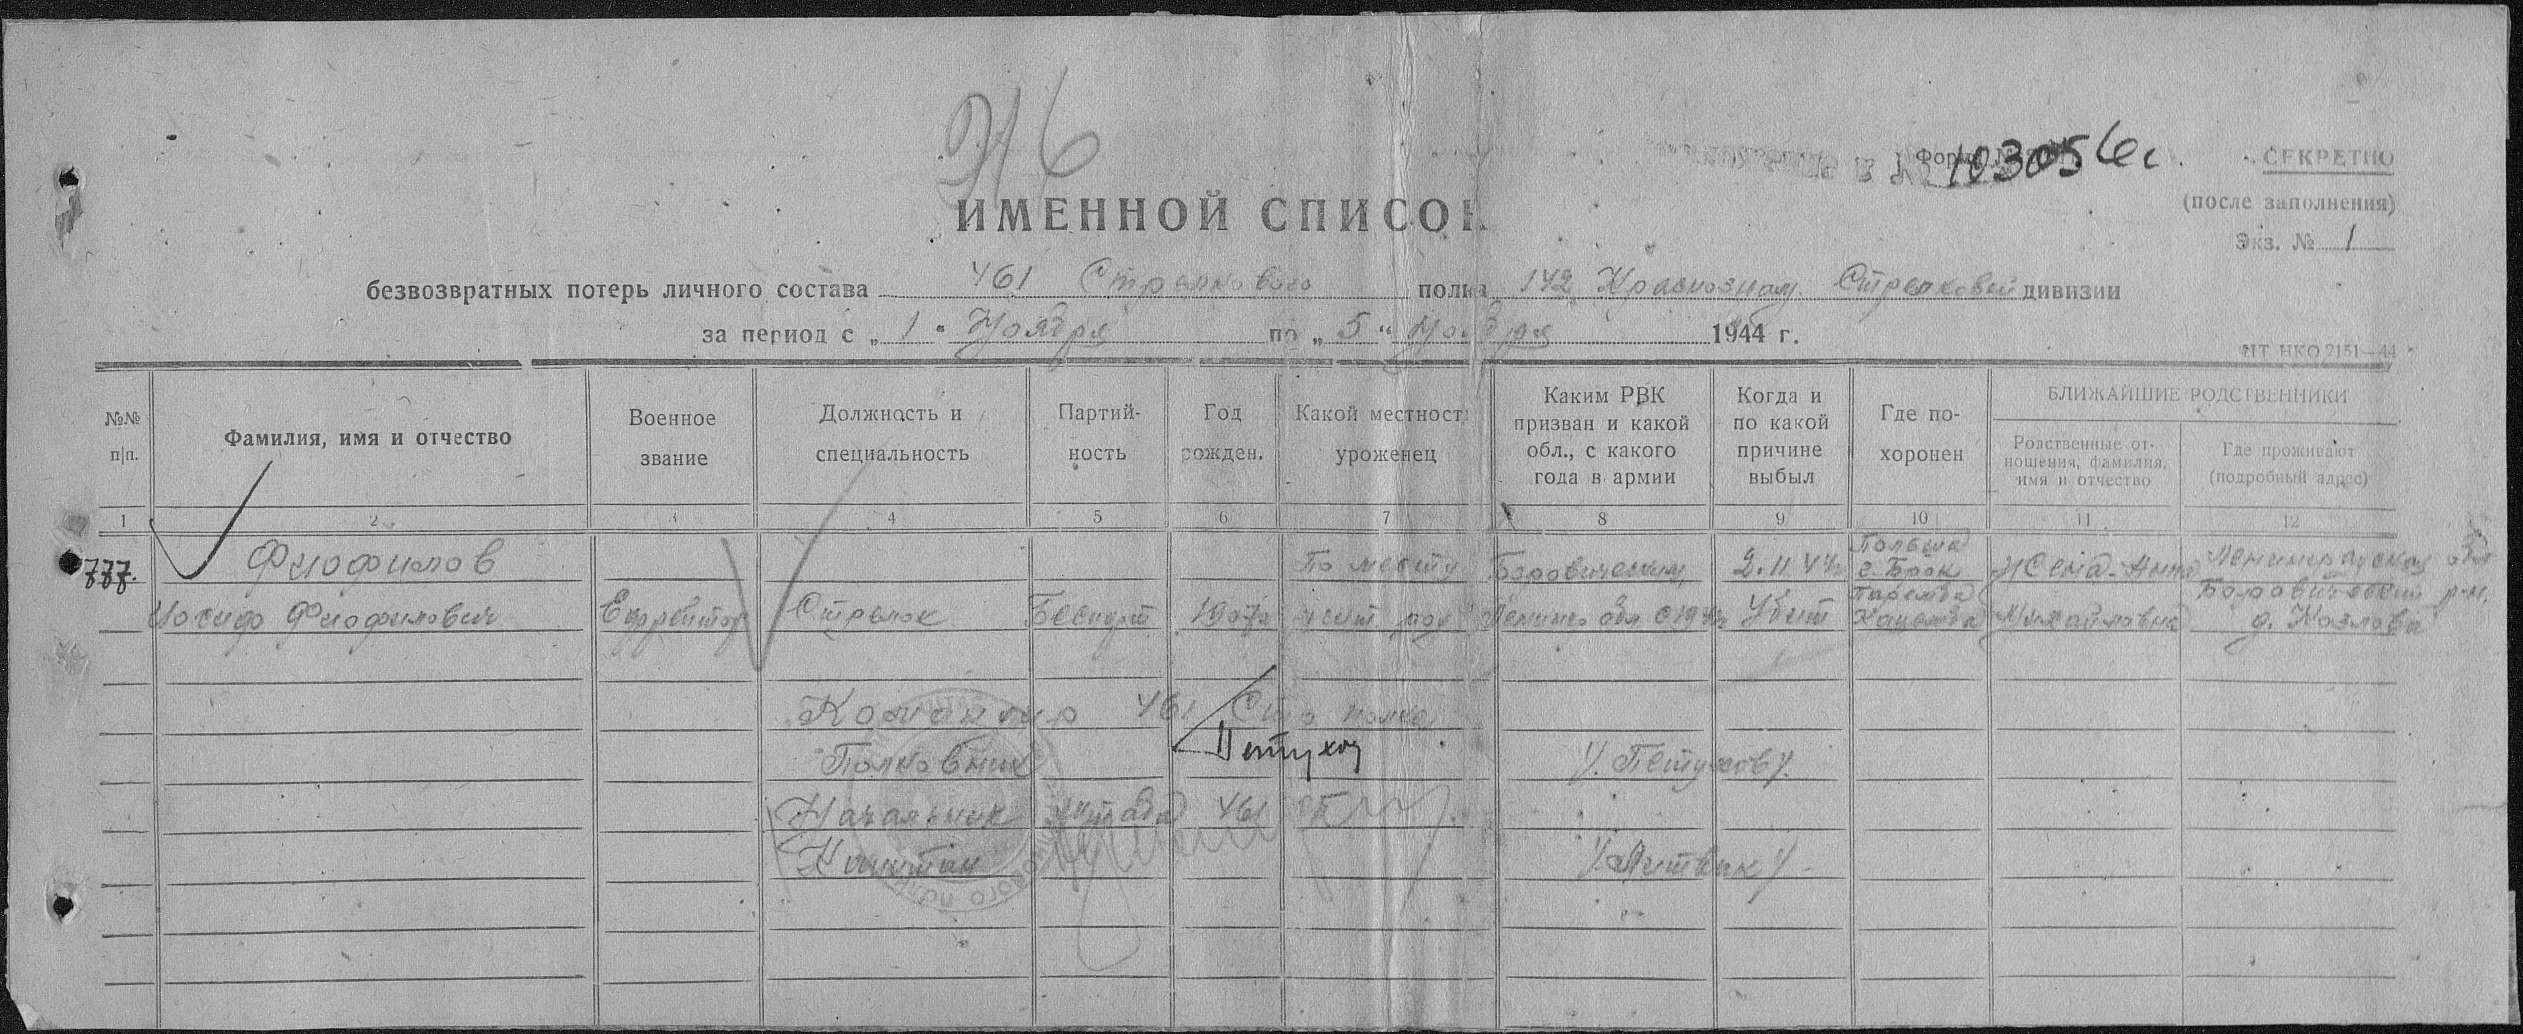 316
Форма
103056с
СЕКРЕТНО
(после заполнения)
Экз. № 1
ИМЕННОЙ СПИСОК
безвозвратных потерь личного состава 461 Стрелкового полка 142 Краснознам. Стрелковой дивизии
за период с „1“ Ноября по „5“ Ноября 1944 г.
ИТ НКО 2151—44
№№ п|п.
Фамилия, имя и отчество
Военное звание
Должность и специальность
Партий- ность
Год рожден.
Какой местност. уроженец
Каким РВК призван и какой обл., с какого года в армии
Когда и по какой причине выбыл
Где по- хоронен
БЛИЖАЙШИЕ РОДСТВЕННИКИ
Родственные от- ношения, фамилия, имя и отчество
Где проживают (подробный адрес)
1 2 3 4 5 6 7 8 9 10 11 12
777. Фиофилов По месту Боровическим 2.11.44г Польша с. Брок Жена-Анна Ленинградская обл
Иосиф Фиофилович Ефрейтор Стрелок Беспарт 1907г жит. род Ленинг. обл Убит Михайловна Боровичский р-н.
д. Козлова
Командир 461 Стр полка
Полковник Петухов /. Петухов /.
Начальник штаба 461 СП
Капитан /. Литвак /